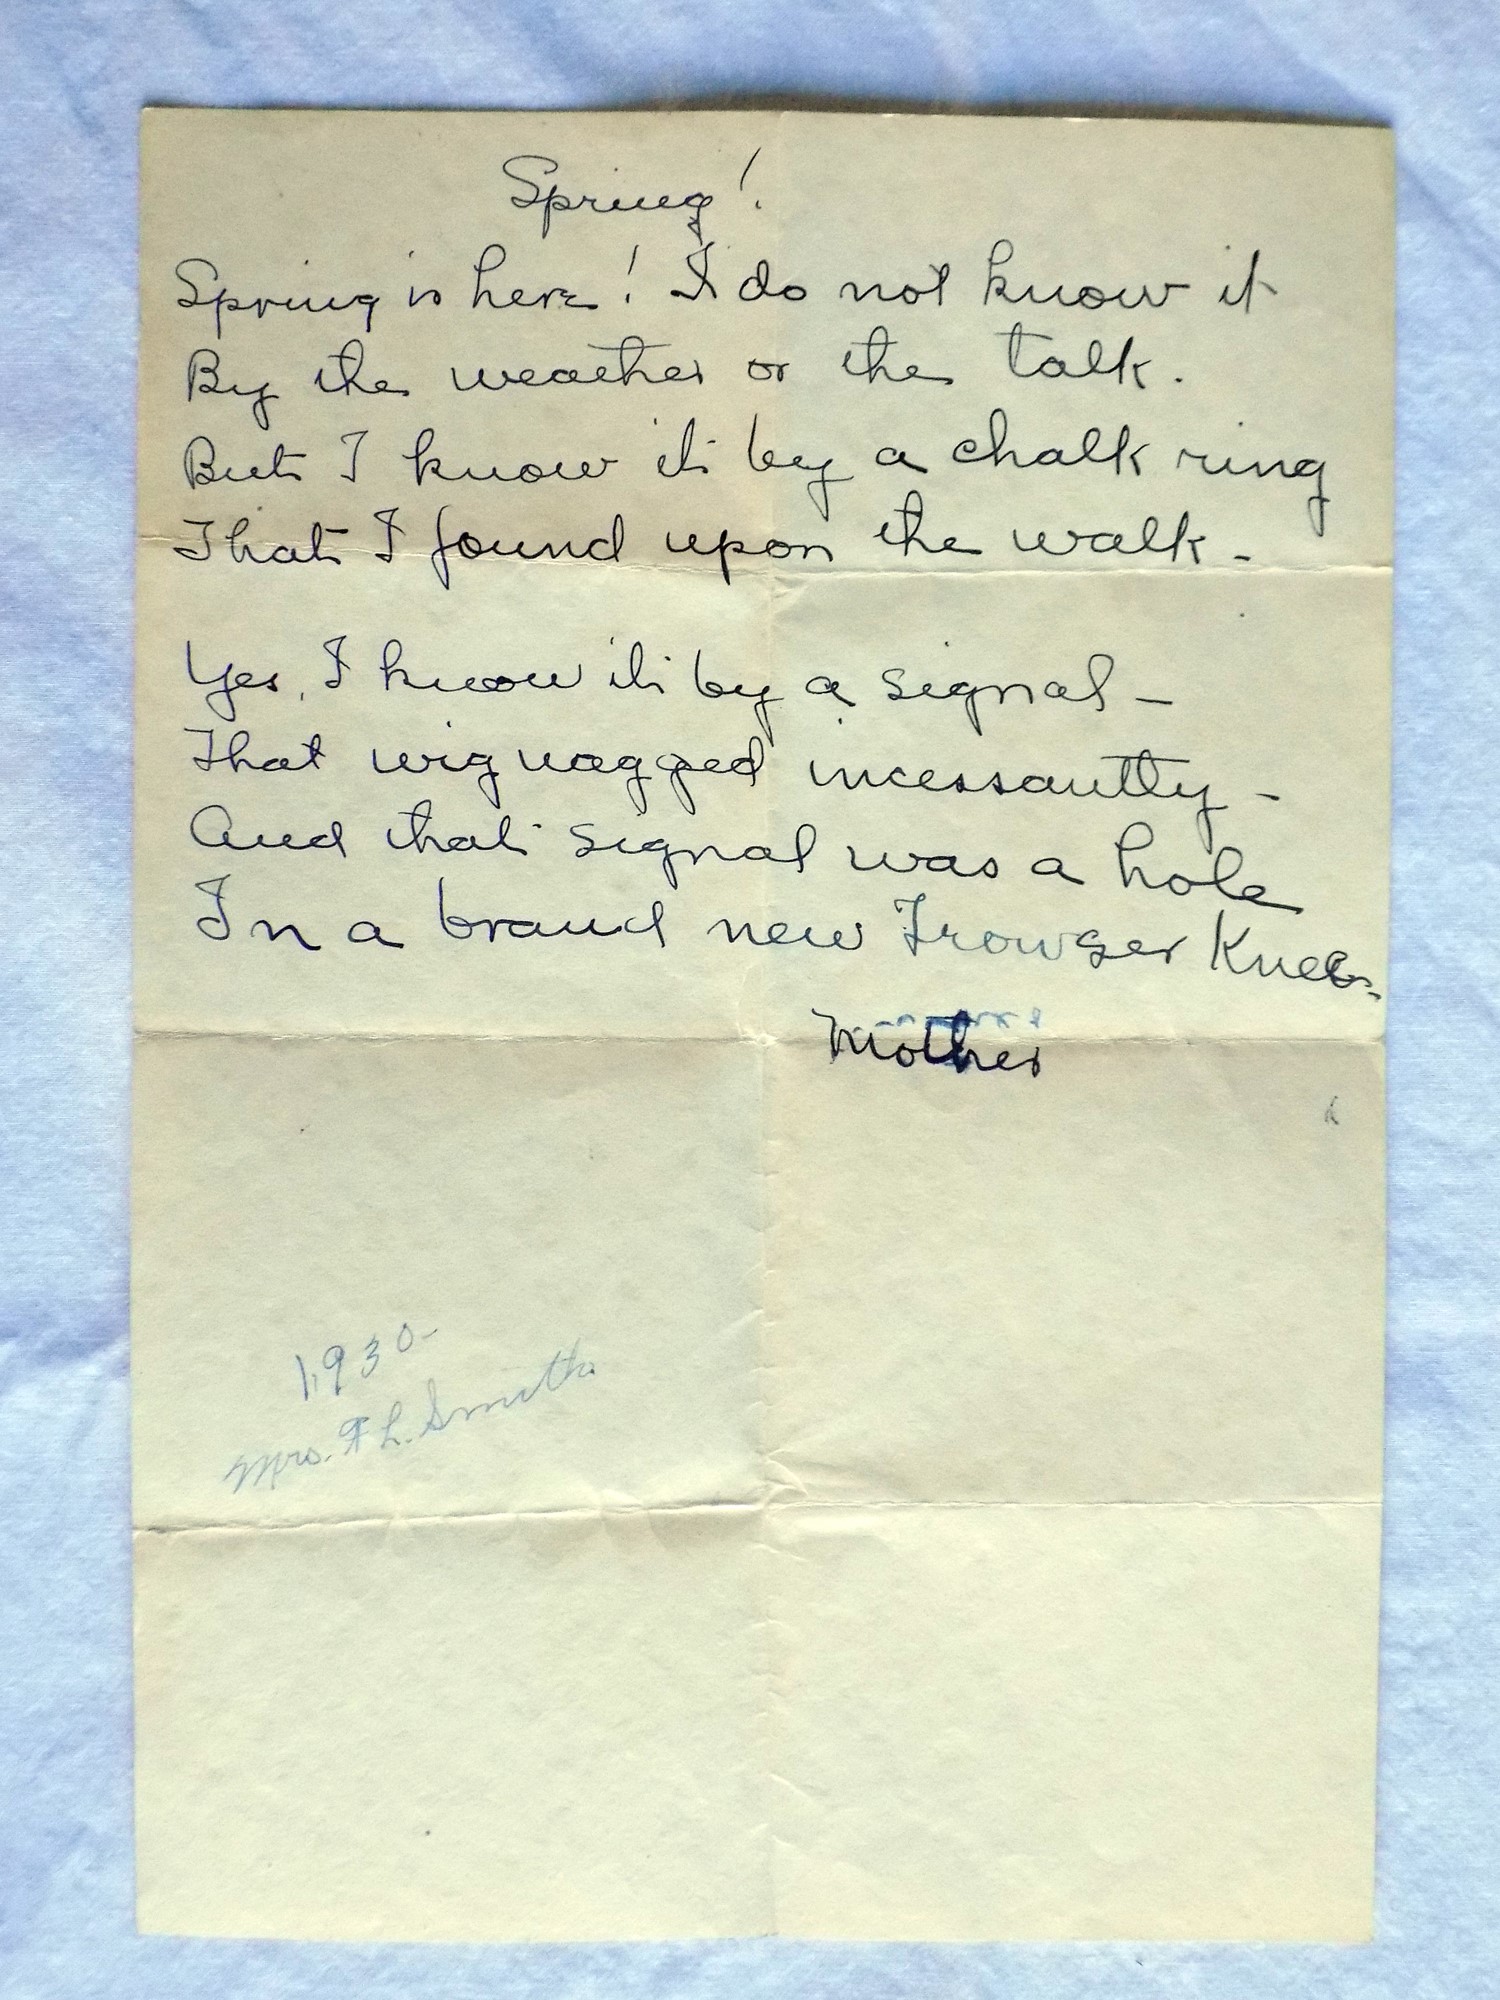 Spring!
Spring is here! I do not know it
By the weather or the talk.
But I know it by a chalk ring
That I found upon the walk -
Yes, I know it by a signal -
That wig wagged incessantly -
And that signal was a hole
In a brand new Trowser Knee.
Mother
1930-
Mrs. F L. Smith.